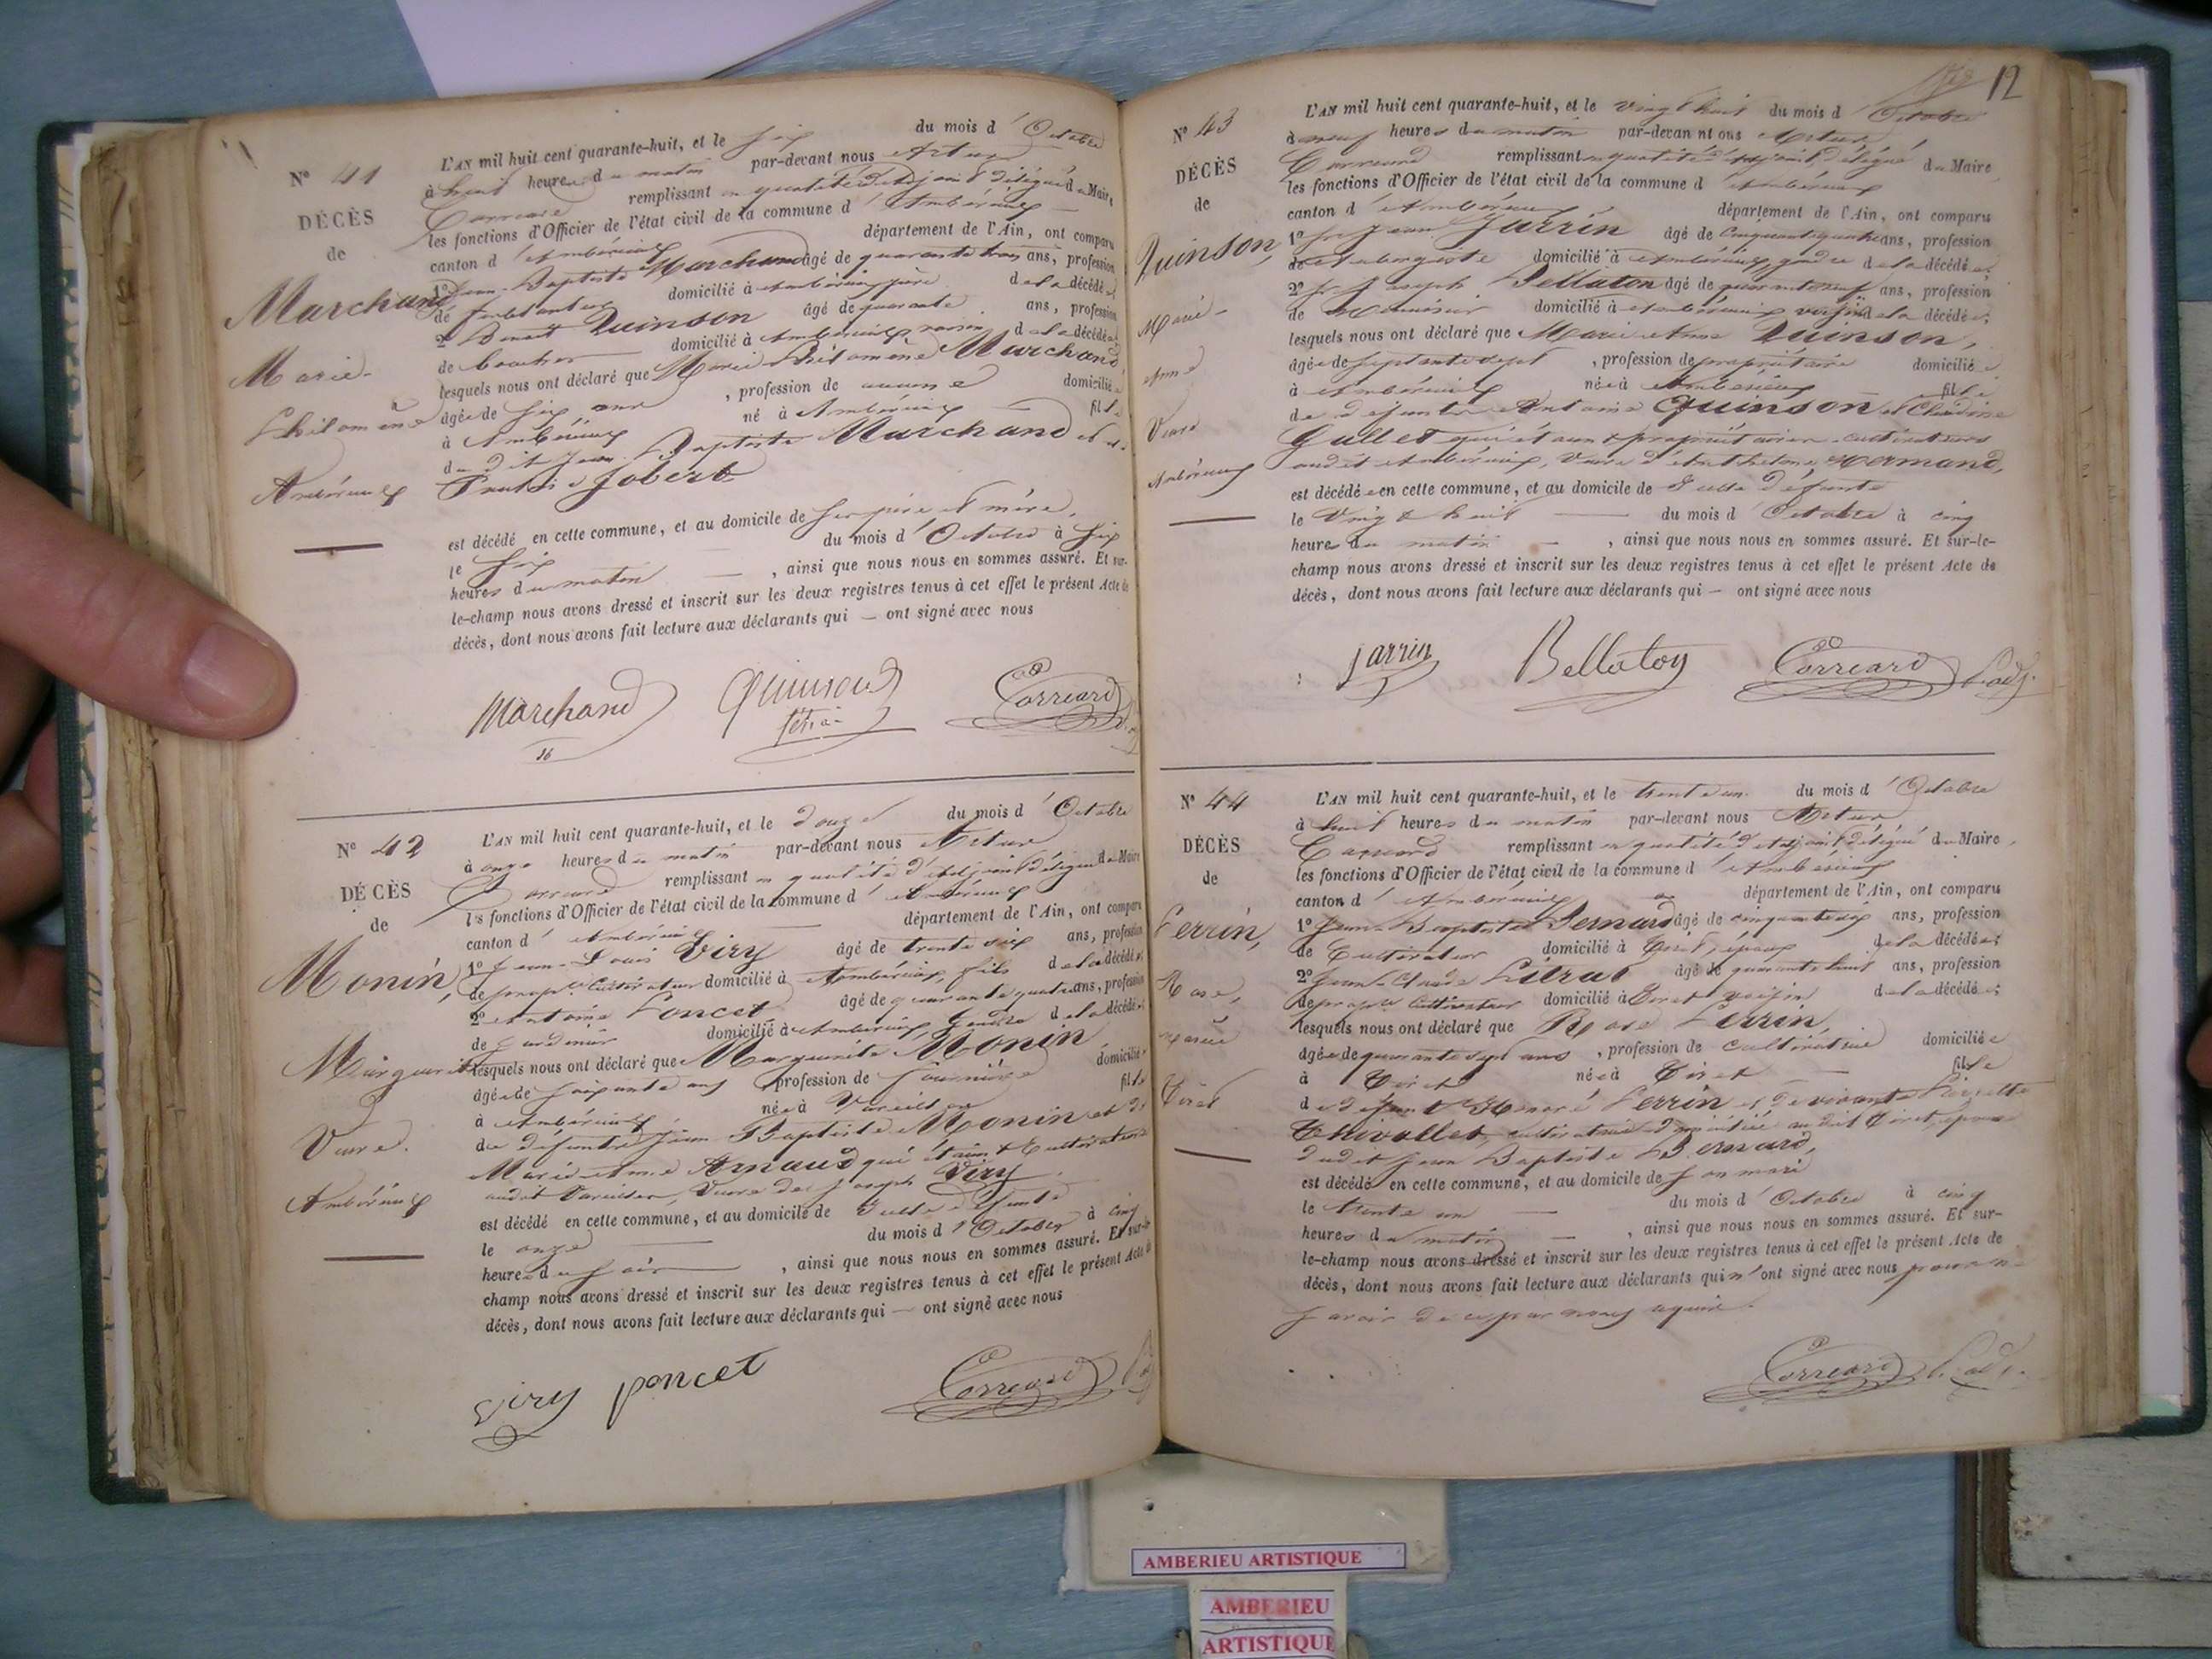 N° 41
DÉCÈS
de
Marchand
Marie-
Philomène
Ambérieux
L'AN mil huit cent quarante-huit, et le six du mois d'Octobre
à huit heures du matin par-devant nous Artur
Correard remplissant en qualité d'adjoint délégué du Maire,
les fonctions d'Officier de l'état civil de la commune d'Ambérieux
canton d'Ambérieux département de l'Ain, ont comparu
1° Jean-Baptiste Marchand âgé de quarante trois ans, profession
de ferblantier domicilié à Ambérieux père de la décédée
2° Benoit Quinson âgé de quarante ans, profession
de boucher domicilié à Ambérieux voisin de la décédée
lesquels nous ont déclaré que Marie Philomène Marchand,
âgée de six ans, profession de aucune domiciliée
à Ambérieux né à Ambérieux fille
du dit Jean Baptiste Marchand et de
Jobert
est décédé en cette commune, et au domicile de ses père et mère,
le six du mois d'Octobre à six
heures du matin, ainsi que nous nous en sommes assuré. Et sur-
le-champ nous avons dressé et inscrit sur les deux registres tenus à cet effet le présent Acte de
décès, dont nous avons fait lecture aux déclarants qui — ont signé avec nous
Marchand Quinson Correard
N° 42
DÉCÈS
de
Monin,
Marguerite
Veuve.
Ambérieux
L'AN mil huit cent quarante-huit, et le douze du mois d'Octobre
à onze heures du matin par-devant nous Artur
Correard remplissant en qualité d'adjoint délégué du Maire
les fonctions d'Officier de l'état civil de la commune d'Ambérieux
canton d'Ambérieux département de l'Ain, ont comparu
1° Jean-Louis Viry âgé de trente six ans, profession
de propre. Cultivateur domicilié à Ambérieux, fils de la décédée
2° Antoine Poncet âgé de quarante quatre ans, profession
de jardinier domicilié à Ambérieux, Gendre de la décédée
lesquels nous ont déclaré que Marguerite Monin
âgée de soixante ans profession de journalière domiciliée
à Ambérieux née à Vareilles fille
de défunts Jean Baptiste Monin et de
Marie-Anne Arnaud qui étaient Cultivateurs
audit Vareilles, Veuve de Joseph Viry
est décédé en cette commune, et au domicile de Ladite défunte
le onze du mois d'Octobre à cinq
heures du soir, ainsi que nous nous en sommes assuré. Et sur-le-
champ nous avons dressé et inscrit sur les deux registres tenus à cet effet le présent Acte de
décès, dont nous avons fait lecture aux déclarants qui — ont signé avec nous
Viry poncet Correard
12
N° 43
DÉCÈS
de
Quinson,
Marie-
Anne
Veuve
Ambérieux
L'AN mil huit cent quarante-huit, et le vingt huit du mois d'Octobre
à neuf heures du matin par-devan nt ous Artur
Correard remplissant en qualité d'adjoint délégué du Maire
les fonctions d'Officier de l'état civil de la commune d'Ambérieux
canton d'Ambérieux département de l'Ain, ont comparu
1° Sr Jean Jarrin âgé de Cinquante quatre ans, profession
de Aubergiste domicilié à Ambérieux, gendre de la décédée;
2° Sr Joseph Bellaton âgé de quarante neuf ans, profession
de Menuisier domicilié à Ambérieux voisin de la décédée;
lesquels nous ont déclaré que Marie Anne Quinson,
âgée de septante sept, profession de propriétaire domiciliée
à Ambérieux née à Ambérieux fille
de défunts Antoine Quinson et Claudine
Gullet qui étaient propriétaires-cultivateurs
audit Ambérieux, Veuve d'Anthelme Mermand,
est décédée en cette commune, et au domicile de Ladite défunte
le Vingt huit du mois d'Octobre à cinq
heures du matin, ainsi que nous nous en sommes assuré. Et sur-le-
champ nous avons dressé et inscrit sur les deux registres tenus à cet effet le présent Acte de
décès, dont nous avons fait lecture aux déclarants qui — ont signé avec nous
jarrin Bellaton Correard
N° 44
DÉCÈS
de
Perrin,
Rose,
mariée
Tiret
L'AN mil huit cent quarante-huit, et le trente un du mois d'Octobre
à huit heures du matin par-devant nous Artur
Correard remplissant en qualité d'adjoint délégué du Maire,
les fonctions d'Officier de l'état civil de la commune d'Ambérieux
canton d'Ambérieux département de l'Ain, ont comparu
1° Jean-Baptiste Bernard âgé de cinquante six ans, profession
de Cultivateur domicilié à Tiret, époux de la décédée;
2° Jean-Claude Litrat âgé de quarante huit ans, profession
de propre Cultivateur domicilié à Tiret voisin de la décédée;
lesquels nous ont déclaré que Rose Perrin,
âgée de quarante sept ans, profession de cultivatrice domiciliée
à Tiret née à Tiret fille
de défunt Honoré Perrin et de vivante Pierrette
Chivollet, cultivatrice domiciliée au dit Tiret, épouse
dudit Jean Baptiste Bernard,
est décédé en cette commune, et au domicile de son mari
le trente un du mois d'Octobre à cinq
heures du matin, ainsi que nous nous en sommes assuré. Et sur-
le-champ nous avons dressé et inscrit sur les deux registres tenus à cet effet le présent Acte de
décès, dont nous avons fait lecture aux déclarants qui n'ont signé avec nous pour ne
savoir de ce par nous requis.
Correard
AMBERIEU ARTISTIQUE
AMBERIEU
ARTISTIQUE